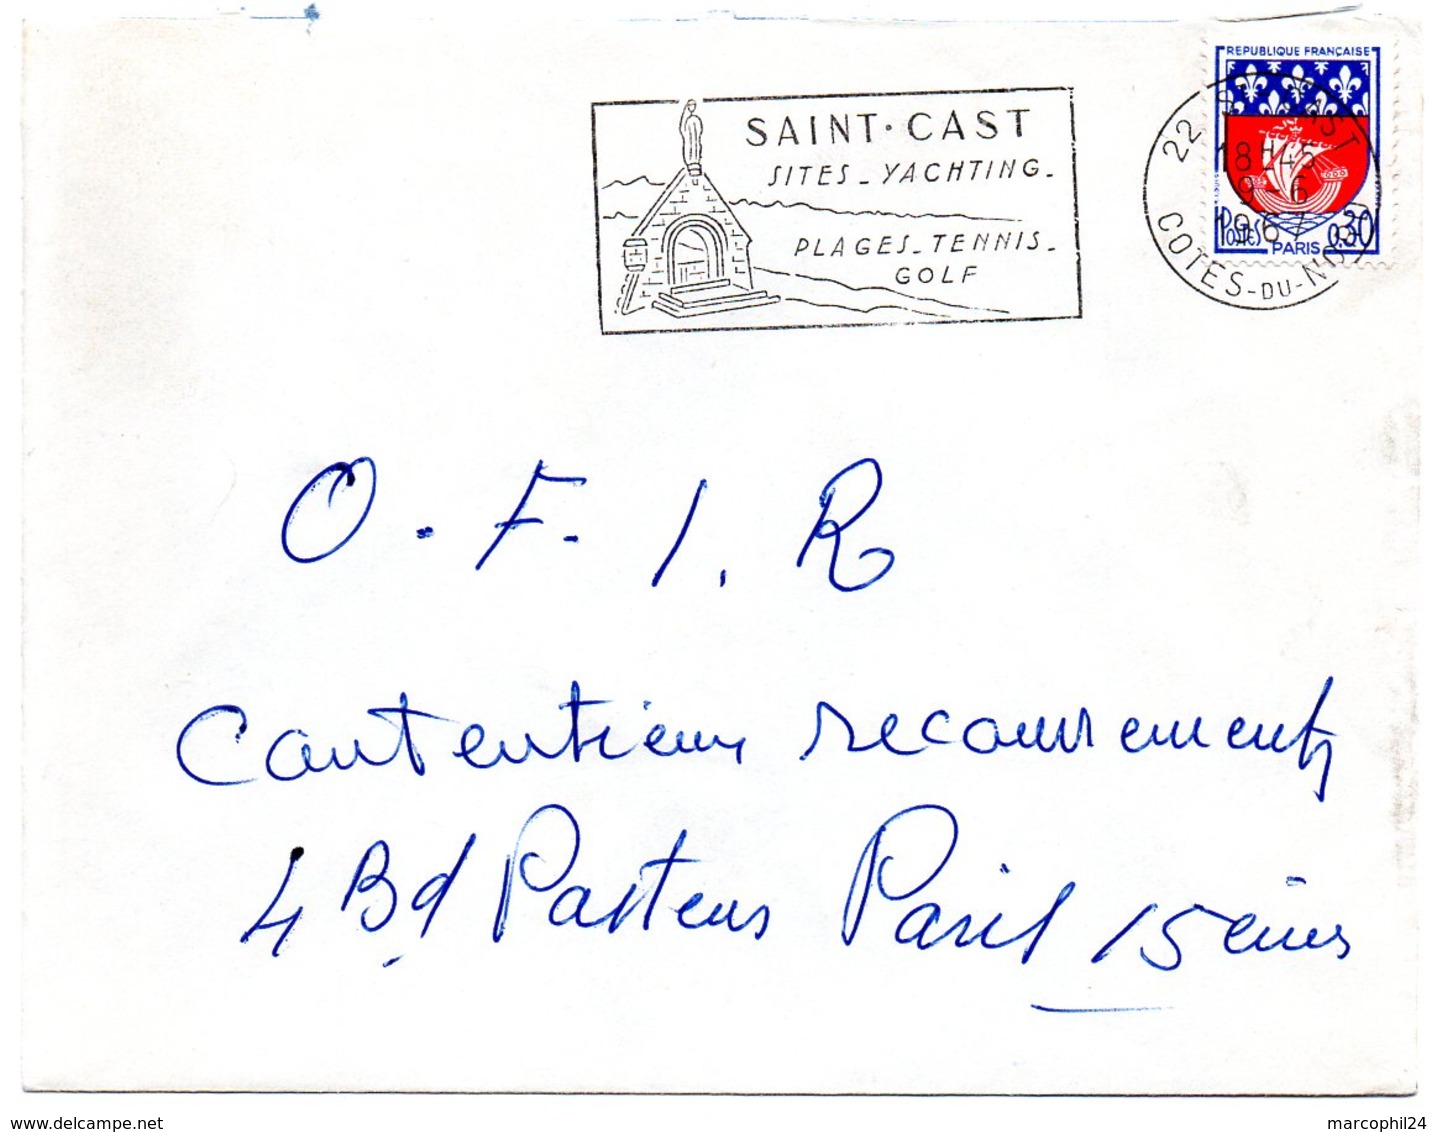 SAINT·CAST
SITES_YACHTING_
PLAGES_TENNIS_
GOLF
REPUBLIQUE FRANÇAISE
22 ST CAST
18H45
9-6
1967
COTES-DU-NORD
POSTES PARIS 0,30
O. F. I. R
Contentieux recouvrements
4 Bd Pasteur Paris 15eme
www.delcampe.net
marcophil24